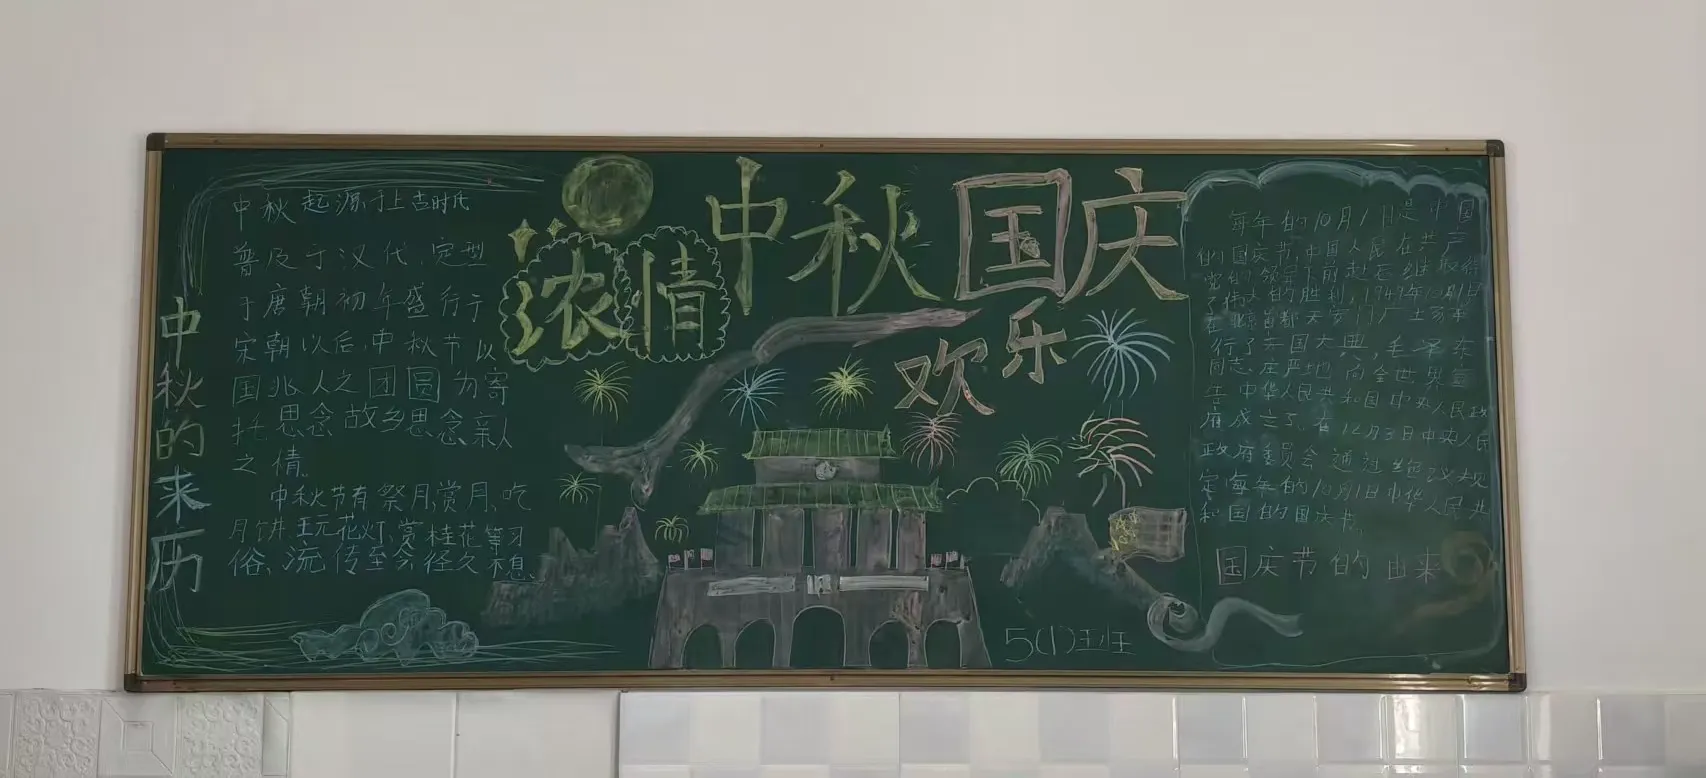 中秋的来历
中秋起源于上古时代
普及于汉代，定型
于唐朝初年盛行于
宋朝以后，中秋节以
国兆人之团圆为寄
托思念故乡思念亲人
之情。
中秋节有祭月，赏月、吃
月饼 玩花灯、赏桂花等习
俗、流传至今经久不息、
浓情
中秋国庆
欢乐
5(1)班
每年的10月1日是中国
们国庆节，中国人民在共产
党的领导下前赴后继取得
了伟大的胜利，1949年10月1日
在北京首都天安门广场举
行了开国大典，毛泽东
同志庄严地向全世界宣
告中华人民共和国中央人民政
府成立了。在12月3日中央人民
政府委员会通过绝议规
定每年的10月1日中华人民共
和国的国庆节。
国庆节的由来